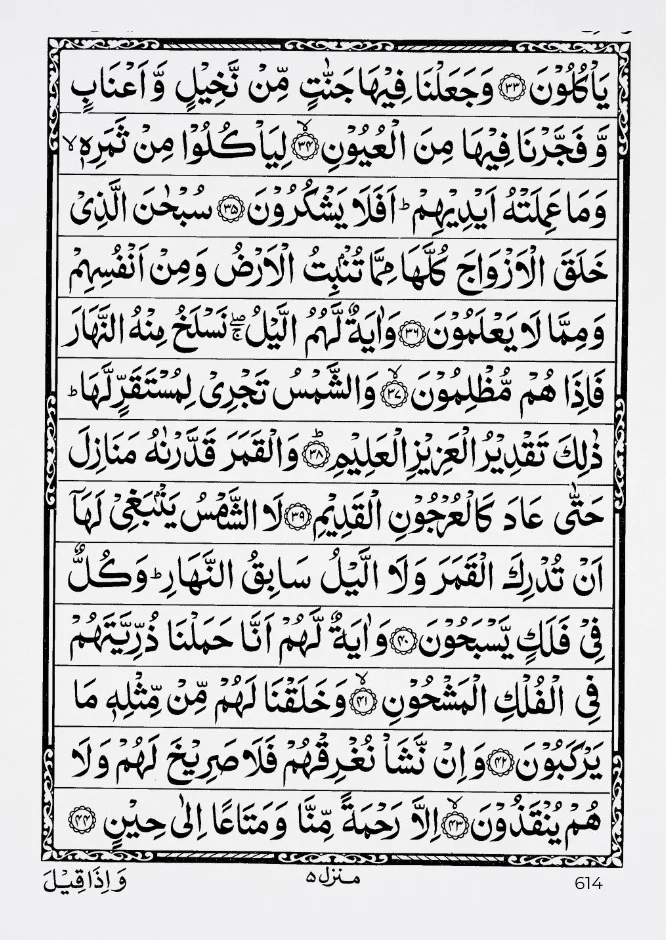 يَاۡكُلُوۡنَ ﴿۳۳﴾ وَجَعَلۡنَا فِيۡهَا جَنّٰتٍ مِّنۡ نَّخِيۡلٍ وَّاَعۡنَابٍ
وَّفَجَّرۡنَا فِيۡهَا مِنَ الۡعُيُوۡنِ ۙ﴿۳۴﴾ لِيَاۡكُلُوۡا مِنۡ ثَمَرِهٖ ۙ
وَمَا عَمِلَتۡهُ اَيۡدِيۡهِمۡ ؕ اَفَلَا يَشۡكُرُوۡنَ ﴿۳۵﴾ سُبۡحٰنَ الَّذِىۡ
خَلَقَ الۡاَزۡوَاجَ كُلَّهَا مِمَّا تُنۡۢبِتُ الۡاَرۡضُ وَمِنۡ اَنۡفُسِهِمۡ
وَمِمَّا لَا يَعۡلَمُوۡنَ ﴿۳۶﴾ وَاٰيَةٌ لَّهُمُ الَّيۡلُ ۖۚ نَسۡلَخُ مِنۡهُ النَّهَارَ
فَاِذَا هُمۡ مُّظۡلِمُوۡنَ ۙ﴿۳۷﴾ وَالشَّمۡسُ تَجۡرِىۡ لِمُسۡتَقَرٍّ لَّهَا ؕ
ذٰلِكَ تَقۡدِيۡرُ الۡعَزِيۡزِ الۡعَلِيۡمِ ؕ﴿۳۸﴾ وَالۡقَمَرَ قَدَّرۡنٰهُ مَنَازِلَ
حَتّٰى عَادَ كَالۡعُرۡجُوۡنِ الۡقَدِيۡمِ ﴿۳۹﴾ لَا الشَّمۡسُ يَنۡۢبَغِىۡ لَهَاۤ
اَنۡ تُدۡرِكَ الۡقَمَرَ وَلَا الَّيۡلُ سَابِقُ النَّهَارِ ؕ وَكُلٌّ
فِىۡ فَلَكٍ يَّسۡبَحُوۡنَ ﴿۴۰﴾ وَاٰيَةٌ لَّهُمۡ اَنَّا حَمَلۡنَا ذُرِّيَّتَهُمۡ
فِى الۡفُلۡكِ الۡمَشۡحُوۡنِ ۙ﴿۴۱﴾ وَخَلَقۡنَا لَهُمۡ مِّنۡ مِّثۡلِهٖ مَا
يَرۡكَبُوۡنَ ﴿۴۲﴾ وَاِنۡ نَّشَاۡ نُغۡرِقۡهُمۡ فَلَا صَرِيۡخَ لَهُمۡ وَلَا
هُمۡ يُنۡقَذُوۡنَ ۙ﴿۴۳﴾ اِلَّا رَحۡمَةً مِّنَّا وَمَتَاعًا اِلٰى حِيۡنٍ ﴿۴۴﴾
614 منزل ۵ وَاِذَا قِيۡلَ